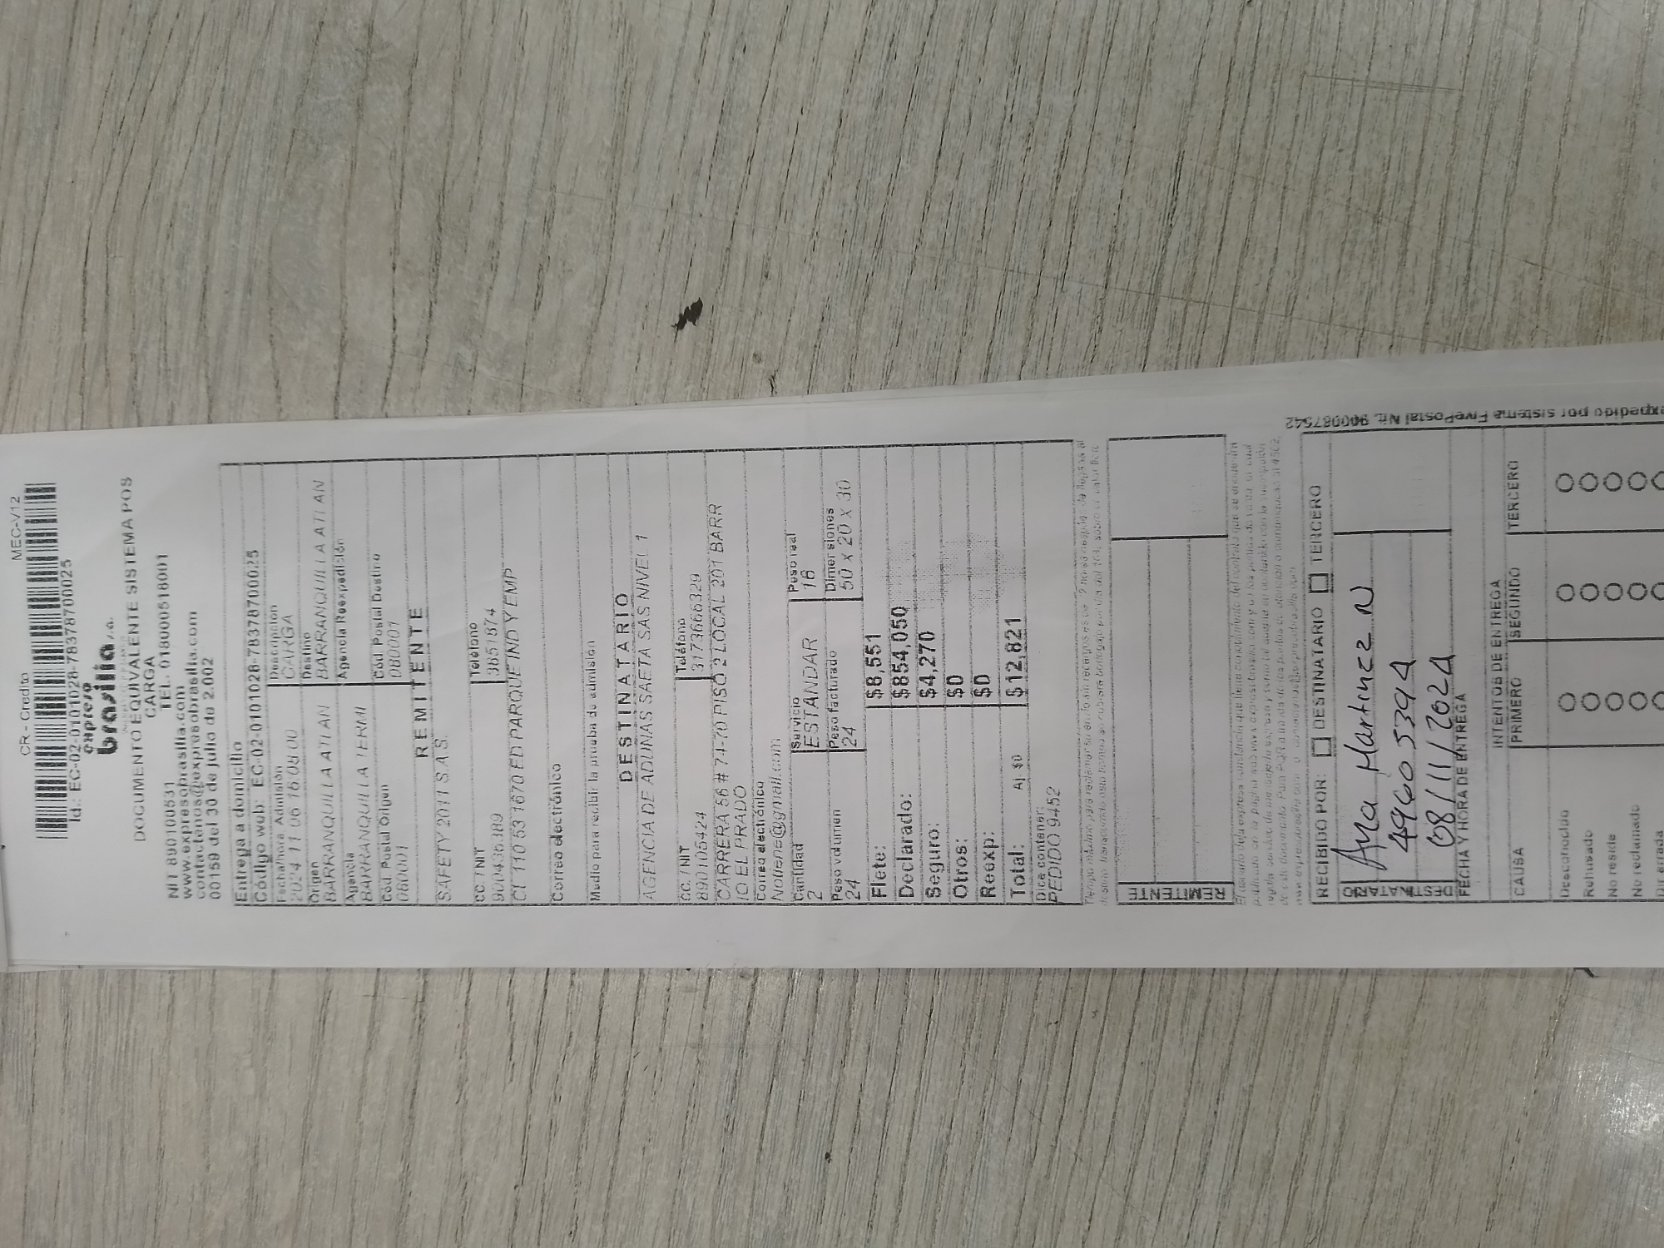 CR - Credito MEC-V12
Id.: EC-02-0101028-78378700025
expreso
brasilia s.a.
DOCUMENTO EQUIVALENTE SISTEMA POS
CARGA
TEL. 018000516001
NIT 890100531
www.expresobrasilia.com
contactenos@expresobrasilia.com
00159 del 30 de julio de 2.002
Entrega a domicilio
Código web: EC-02-0101028-78378700025
Fecha/hora Admisión Descripción
2024 11 06 16:08:00 CARGA
Origen Destino
BARRANQUILLA ATLAN BARRANQUILLA ATLAN
Agencia Agencia Reexpedición
BARRANQUILLA TERMI
Cód. Postal Origen Cód. Postal Destino
080001 080001
REMITENTE
SAFETY 2011 S.A.S.
CC / NIT Teléfono
900436389 3851874
CL 110 53 1670 ED PARQUE IND Y EMP
Correo electrónico
Medio para recibir la prueba de admisión
DESTINATARIO
AGENCIA DE ADUNAS SAETA SAS NIVEL 1
CC / NIT Teléfono
890105424 3173666329
CARRERA 56 # 74-70 PISO 2 LOCAL 201 BARR
IO EL PRADO
Correo electrónico
Notiene@gmail.com
Cantidad Servicio Peso real
2 ESTANDAR 16
Peso volumen Peso facturado Dimensiones
24 24 50 x 20 x 30
Flete: $8,551
Declarado: $854,050
Seguro: $4,270
Otros: $0
Reexp: $0
Total: Aj $0 $12,821
Dice contener:
PEDIDO 9452
REMITENTE
RECIBIDO POR: DESTINATARIO TERCERO
DESTINATARIO
Ana Martinez N
49603394
08/11/2024
FECHA Y HORA DE ENTREGA
INTENTOS DE ENTREGA
CAUSA PRIMERO SEGUNDO TERCERO
Desconocido
Rehusado
No reside
No reclamado
Dir errada
expedido por sistema FivePostal Nit. 900087542